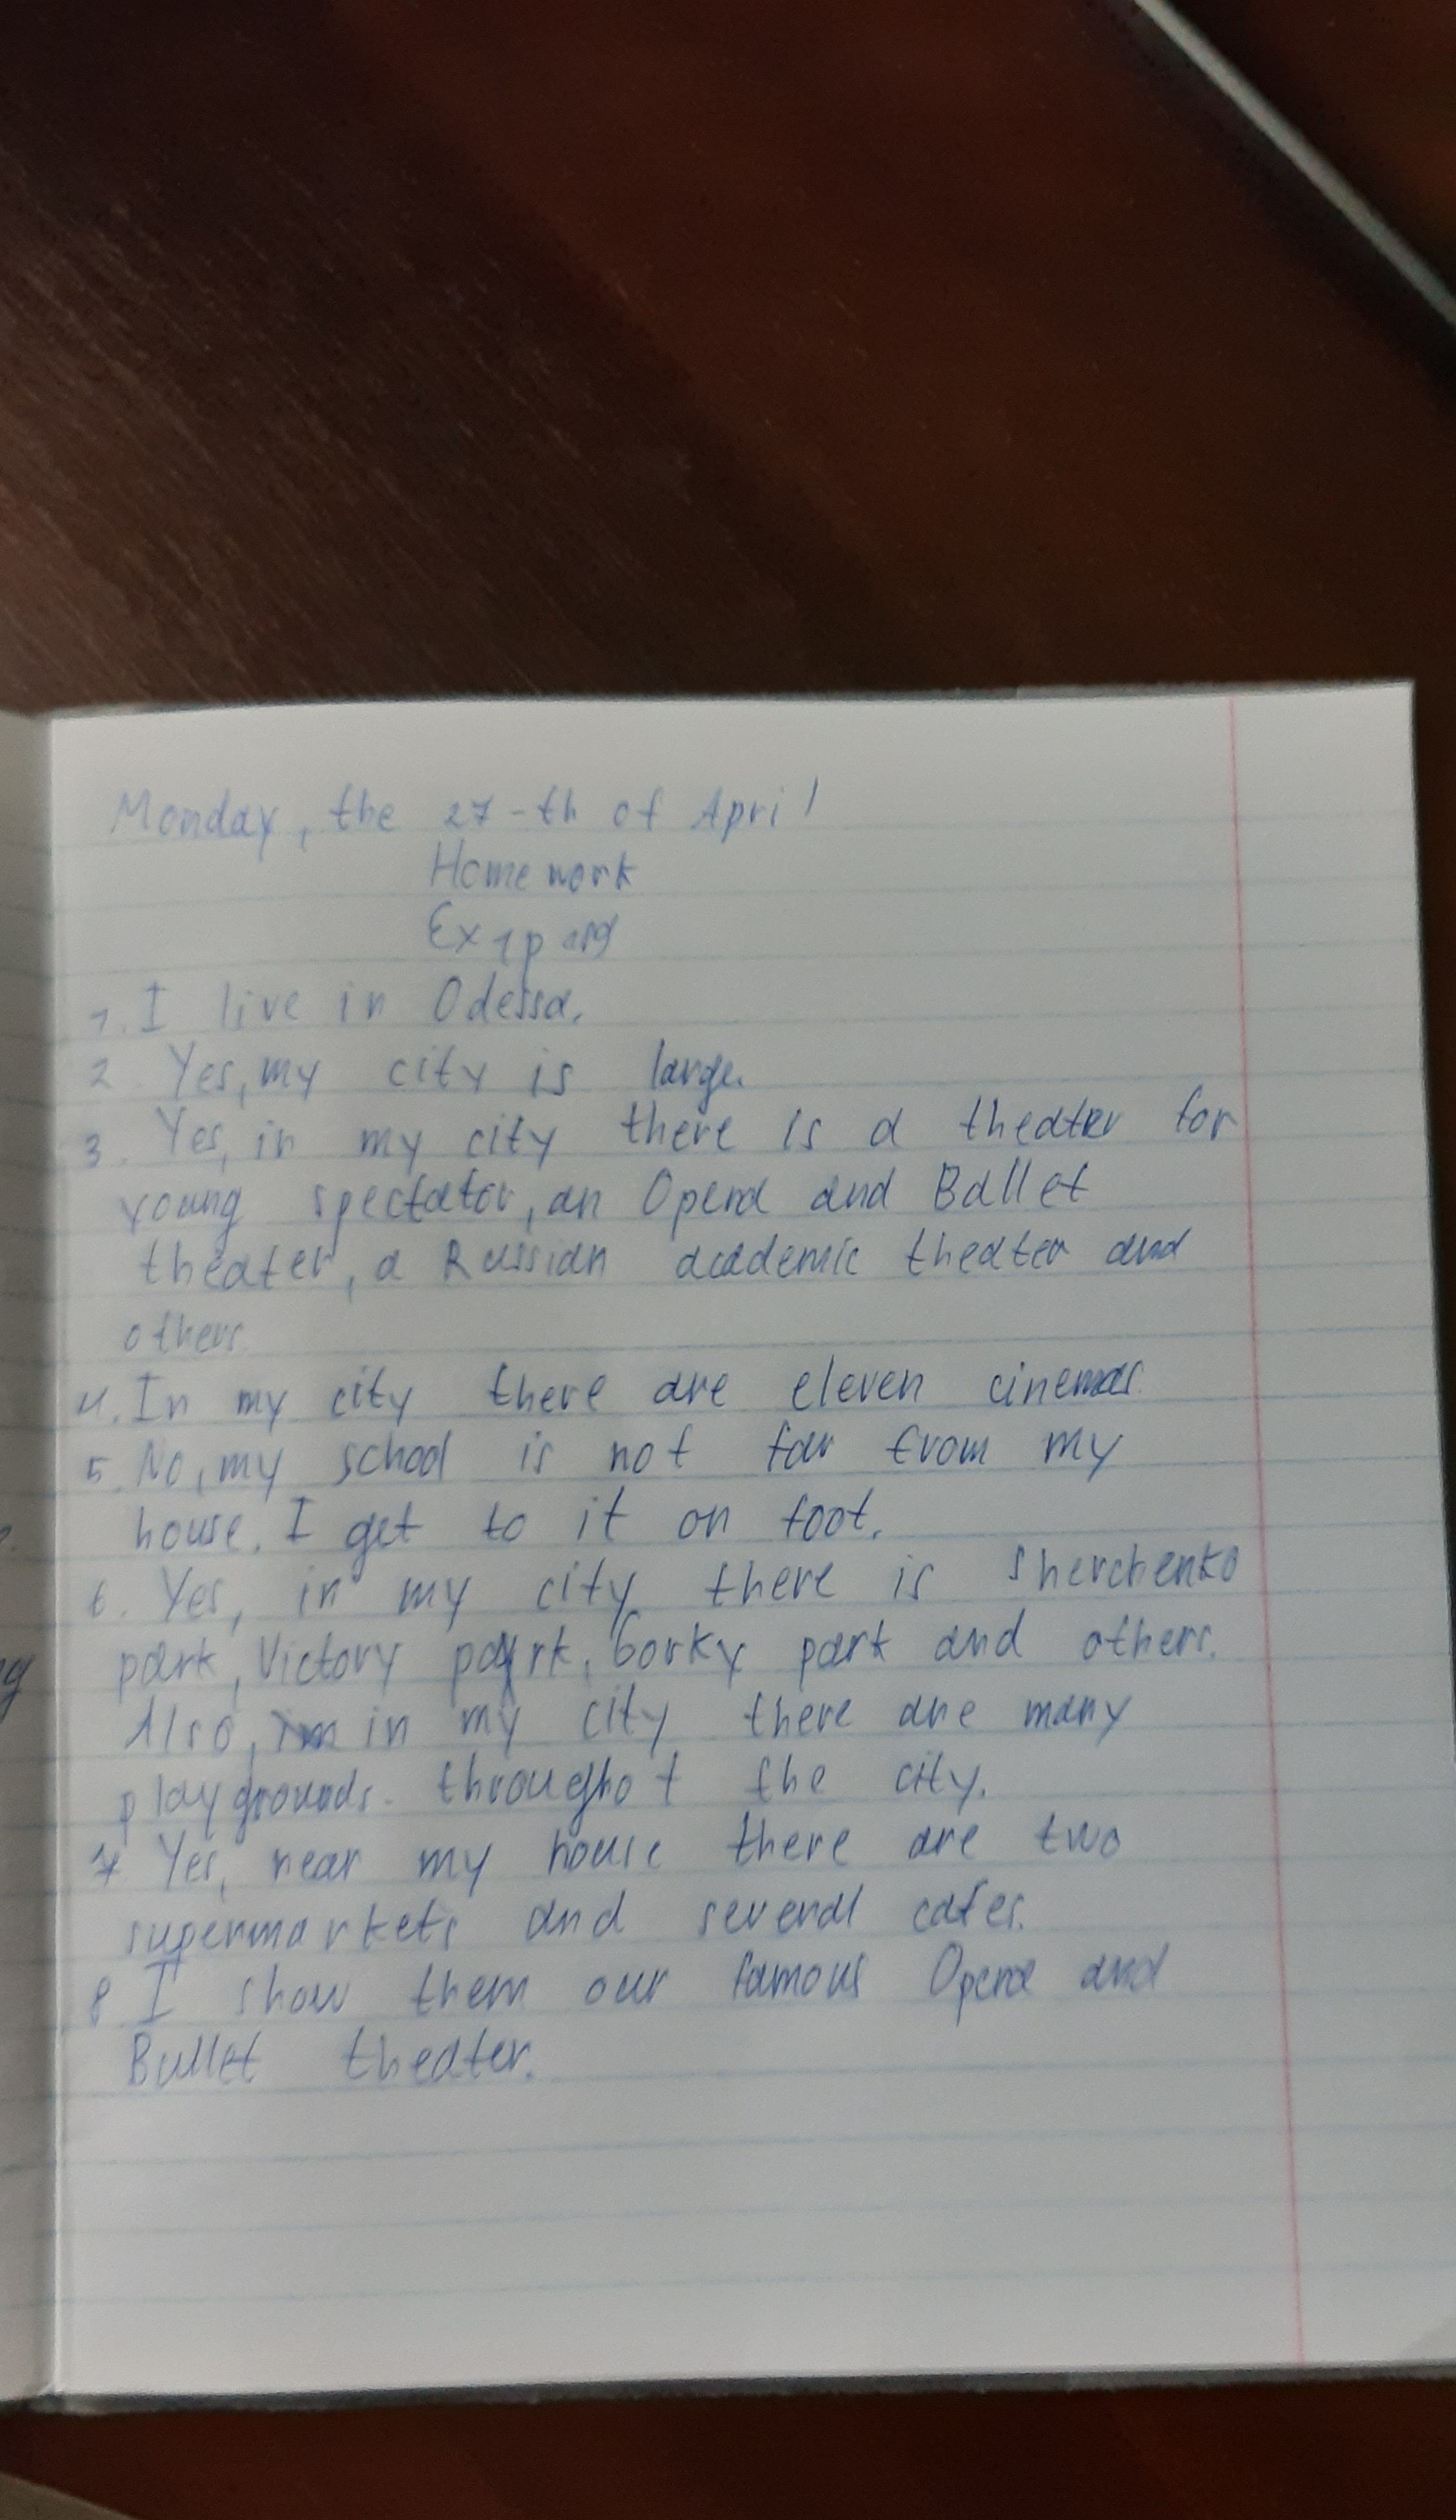 Monday, the 27-th of April
Home work
Ex 1 p 189
1. I live in Odessa.
2. Yes, my city is large.
3. Yes, in my city there is a theater for
young spectator, an Opera and Ballet
theater, a Russian academic theater and
others.
4. In my city there are eleven cinemas.
5. No, my school is not far from my
house. I get to it on foot.
6. Yes, in my city there is Shevchenko
park, Victory park, Gorky park and others.
Also, in my city there are many
playgrounds. throughot the city.
7. Yes, near my house there are two
supermarkets and several cafes.
8. I show them our famous Opera and
Bullet theater.